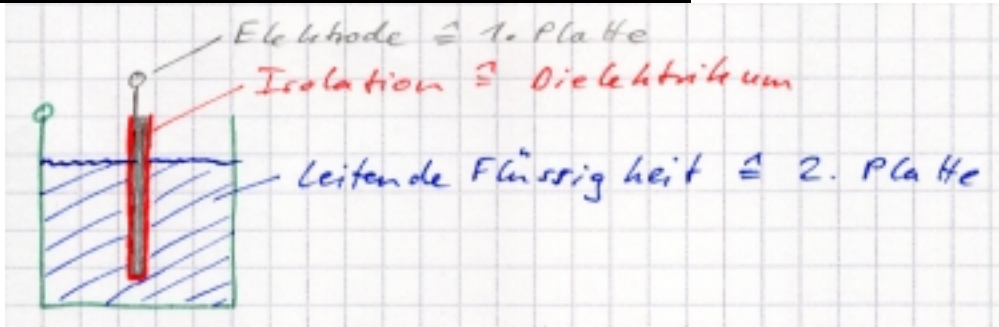 Elektrode ≙ 1. Platte
Isolation ≙ Dielektrikum
Leitende Flüssigkeit ≙ 2. Platte